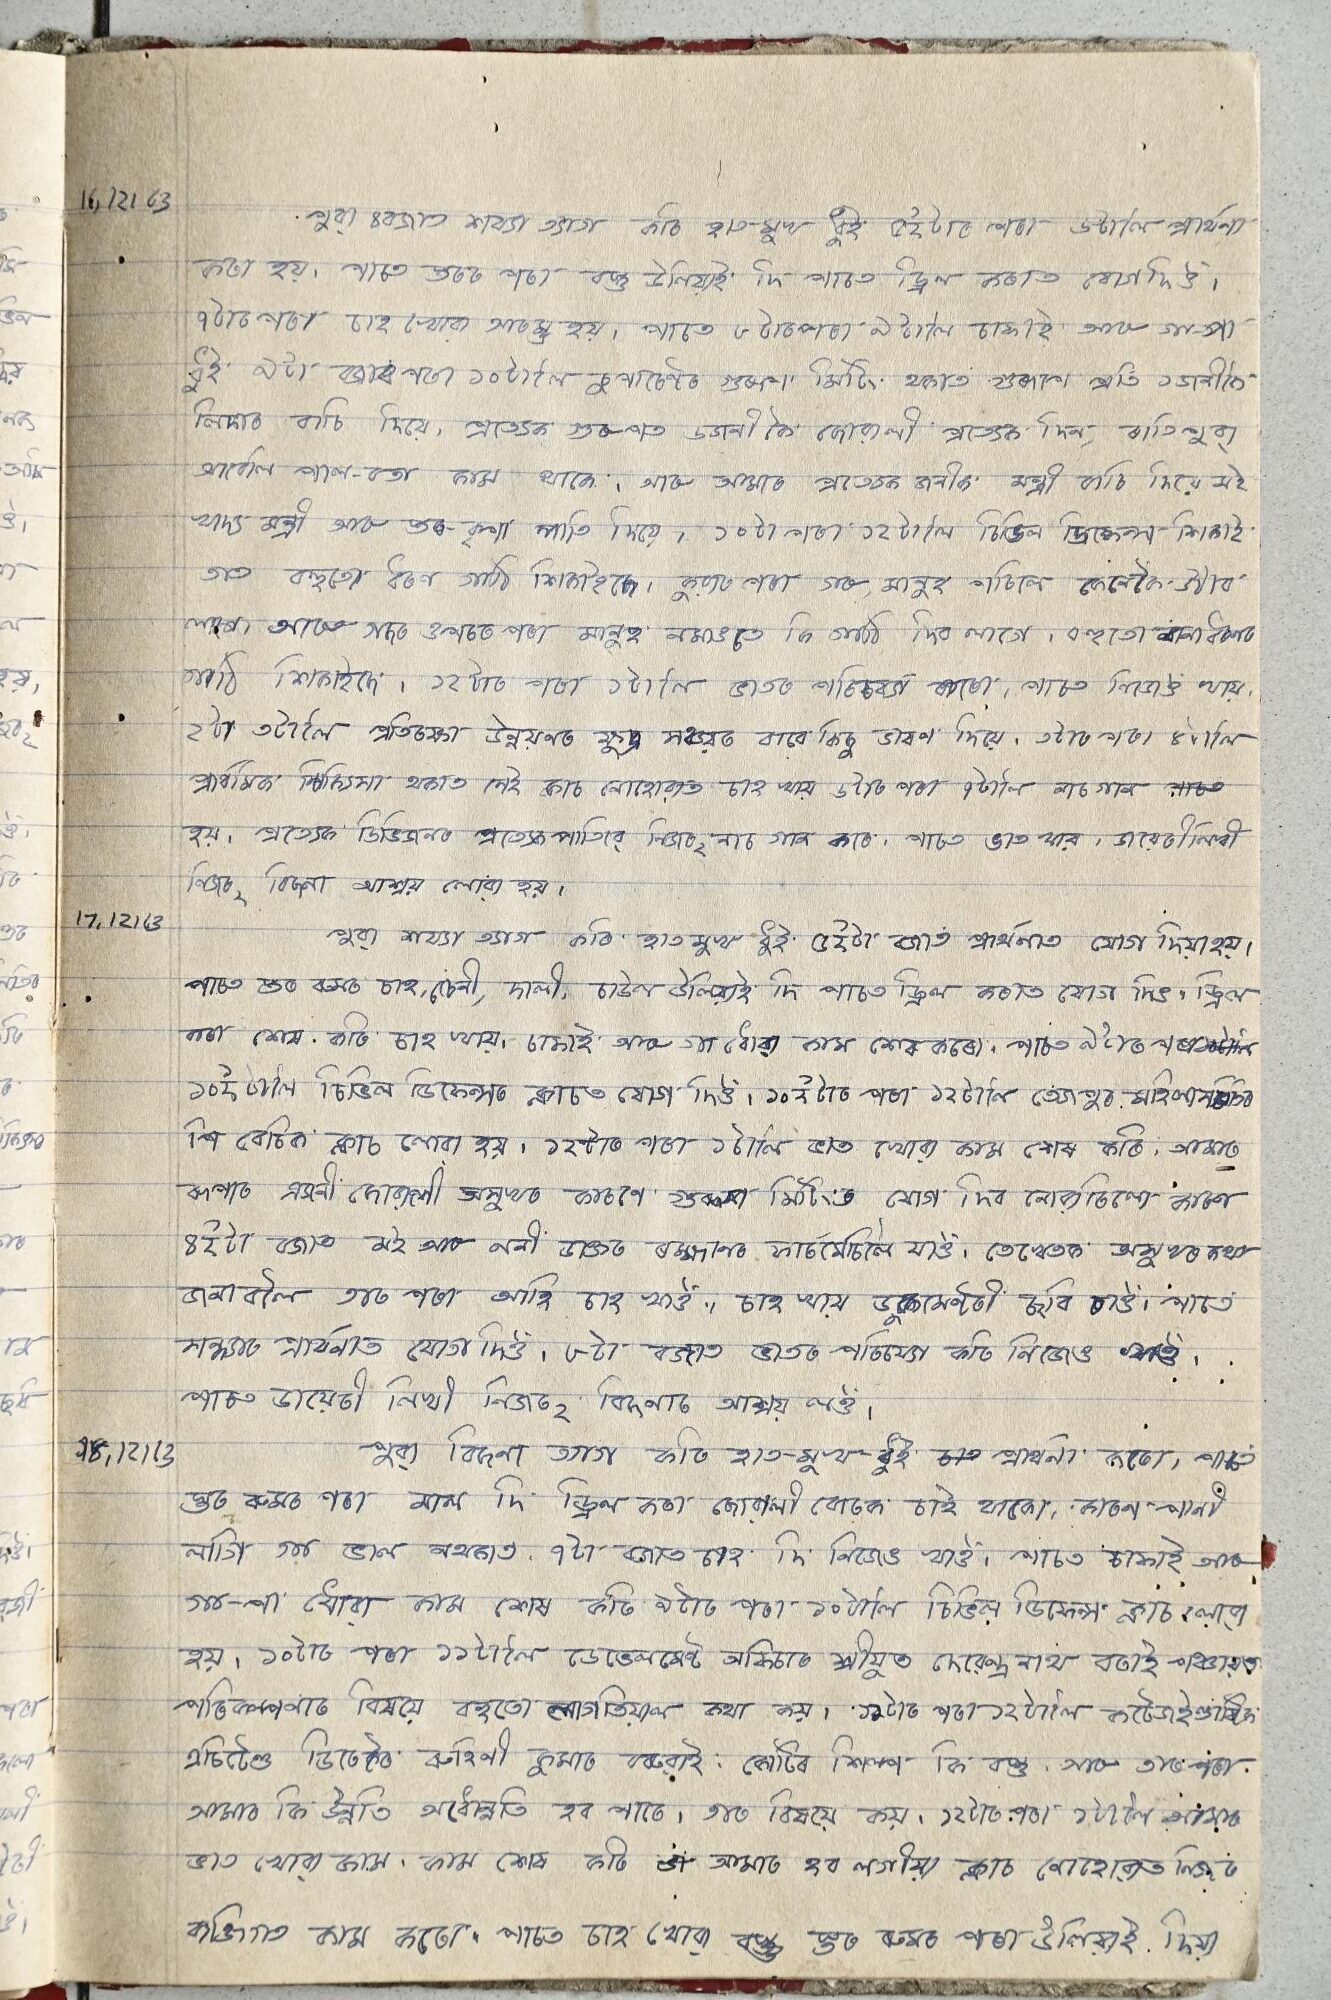 16/12/63
পুৱা ৪বজাত শয্যা ত্যাগ কৰি হাত-মুখ ধুই ৫ইটাৰ পৰা ৬টালৈ প্ৰাৰ্থনা
কৰা হয়। পাচত ষ্টৰৰ পৰা বস্তু উলিয়াই দি পাচত ড্ৰিল কৰাত যোগ দিওঁ।
৭টাৰ পৰা চাহ খোৱা আৰম্ভ হয়। পাচত ৮টাৰপৰা ৯টালৈ চাফাই আৰু গা-পা
ধুই ৯টা বজাৰ পৰা ১০টালৈ গ্ৰুপ মিটিং থকাত প্ৰতি ১জনীকৈ
লিদাৰ বাচি দিয়ে। প্ৰত্যেক গ্ৰুপত ৬জনীকৈ ছোৱালী প্ৰত্যেক দিন, ৰাতিপুৱা
আবেলি পাল-বতা কাম থাকে। আৰু আমাৰ প্ৰত্যেক জনীক মন্ত্ৰী বাচি দিয়ে মই
খাদ্য মন্ত্ৰী আৰু পাতি দিয়ে। ১০টা পৰা ১২টালৈ চিভিল ডিফেন্স শিকাই
তাত বহুতো ধৰণ গাঠি শিকাইছে। কুৱাৰ পৰা গৰু, মানুহ পৰিলে কেনেকৈ উঠাব
লাগে আৰু গছৰ ওপৰৰ পৰা মানুহ নমাওতে কি গাঠি দিব লাগে। বহুতো ধৰণৰ
গাঠি শিকাইছে। ১২টাৰ পৰা ১টালৈ ভাতৰ পৰিচৰ্য্যা কৰো, পাচত নিজেও খায়।
২টা ৩টালৈ প্ৰতিৰক্ষা উন্নয়ণৰ ক্ষুদ্ৰ সঞ্চয়ৰ বাবে কিছু ভাষণ দিয়ে। ৩টাৰ পৰা ৪টালৈ
প্ৰাথমিক চিকিৎসা থকাত সেই ক্লাচ নোহোৱাত চাহ খায় ৬টাৰ পৰা ৭টালৈ নাচ গান
হয়। প্ৰত্যেক ডিভিজনৰ প্ৰত্যেক পাৰ্টিয়ে নিজৰ২ নাচ গান কৰে। পাচত ভাত খায়। ডায়েৰী লিখী
নিজৰ২ বিচনা আশ্ৰয় লোৱা হয়।
17/12/63
পুৱা শয্যা ত্যাগ কৰি হাত মুখ ধুই ৫ইটা বজাত প্ৰাৰ্থনাত যোগ দিয়া হয়।
পাচত ষ্টৰ ৰুমৰ চাহ, চেনী, দালী, চাউল উলিয়াই দি পাচত ড্ৰিল কৰাত যোগ দিওঁ। ড্ৰিল
কৰা শেষ কৰি চাহ খায়। চাফাই আৰু গা ধোৱা কাম শেষ কৰো। পাচত ৯টাৰ পৰা
১০ইটালৈ চিভিল ডিফেন্সৰ ক্লাচত যোগ দিওঁ। ১০ইটাৰ পৰা ১২টালৈ তেজপুৰ মহিলা সমিতিৰ
ক্লাচ লোৱা হয়। ১২টাৰ পৰা ১টালৈ ভাত খোৱা কাম শেষ কৰি আমাৰ
এজনী ছোৱালী অসুখৰ কাৰণে মিটিংত যোগ দিব নোৱাৰিলো কাৰণ
৪ইটা বজাত মই আৰু ফাৰ্মেচিলৈ যাওঁ। তেখেতক অসুখৰ কথা
জনাবলৈ তাৰ পৰা আহি চাহ খাওঁ। চাহ খায় ডকুমেণ্টৰী ছবি চাওঁ। পাচত
সন্ধ্যাৰ প্ৰাৰ্থনাত যোগ দিওঁ। ৮টা বজাত ভাতৰ পৰিচৰ্য্যা কৰি নিজেও খাওঁ।
পাচত ডায়েৰী লিখী নিজৰ২ বিচনাত আশ্ৰয় লওঁ।
18/12/63
পুৱা বিচনা ত্যাগ কৰি হাত-মুখ ধুই প্ৰাৰ্থনা কৰো, পাচত
ষ্টৰ ৰুমৰ পৰা মাল দি ড্ৰিল কৰা ছোৱালী বোৰক চাই থাকো, কাৰণ পানী
লাগি গা ভাল নথকাত ৭টা বজাত চাহ দি নিজেও খাওঁ। পাচত চাফাই আৰু
গা-পা ধোৱা কাম শেষ কৰি ৯টাৰ পৰা ১০টালৈ চিভিল ডিফেন্স ক্লাচ লোৱা
হয়। ১০টাৰ পৰা ১১টালৈ ডেভেলমেণ্ট অফিচাৰ শ্ৰীযুত দেৱেন্দ্ৰ নাথ বৰাই পঞ্চায়ত
পৰিকল্পনাৰ বিষয়ে বহুতো লাগতিয়াল কথা কয়। ১১টাৰ পৰা ১২টালৈ কটেজ ইণ্ডাষ্ট্ৰিজ
এচিটেণ্ড ডিৰেক্টৰ ৰুহিনী কুমাৰ বৰুৱাই কোটিৰ শিল্প কি বস্তু আৰু তাৰ পৰা
আমাৰ কি উন্নতি অৱোন্নতি হব পাৰে। তাৰ বিষয়ে কয়। ১২টাৰ পৰা ১টালৈ আমাৰ
ভাত খোৱা কাম। কাম শেষ কৰি আমাৰ হব লগীয়া ক্লাচ নোহোৱাত নিজৰ
ব্যক্তিগত কাম কৰো। পাচত চাহ খোৱা বস্তু ষ্টৰ ৰুমৰ পৰা উলিয়াই দিয়া